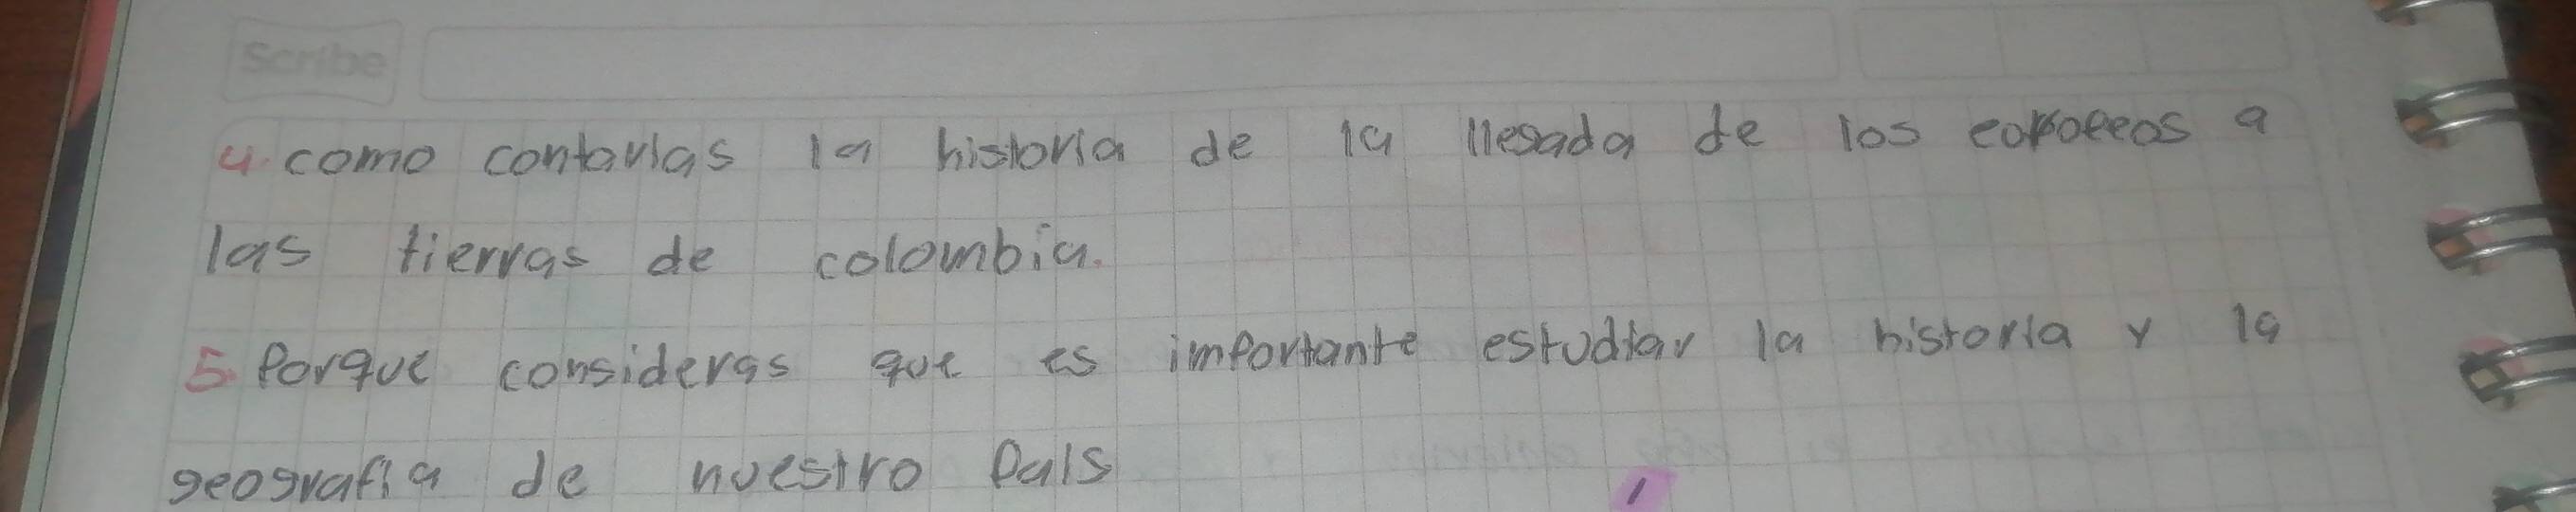 Scribe
4. como contarias la historia de la llegada de los eoropeos a
las tierras de colombia.
5. Porque consideras que es importante estudiar la historia y la
geografia de nuestro Pais